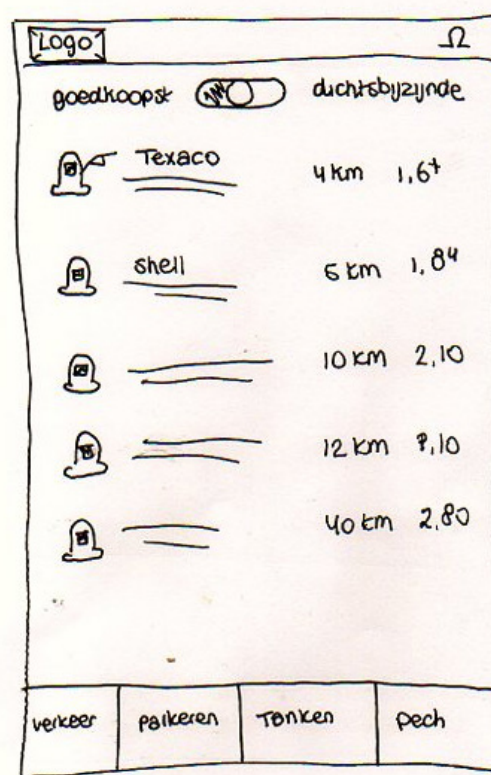 Logo
goedkoopst dichtsbijzijnde
Texaco 4 km
shell 5 km 1,84
10 km 2,10
12 km
40 km 2,80
verkeer parkeren Tanken pech